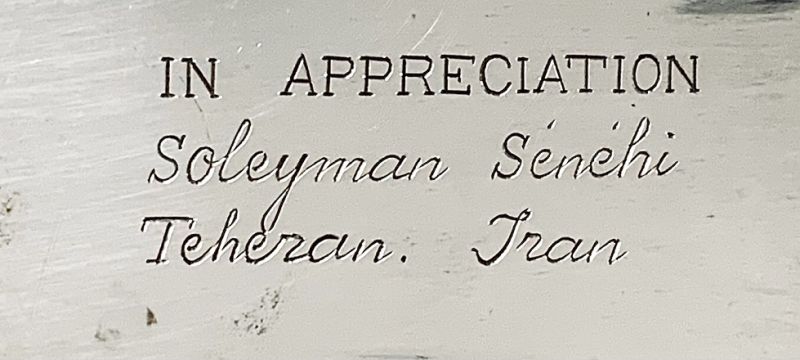 IN APPRECIATION
Soleyman Sénéhi
Teheran. Iran